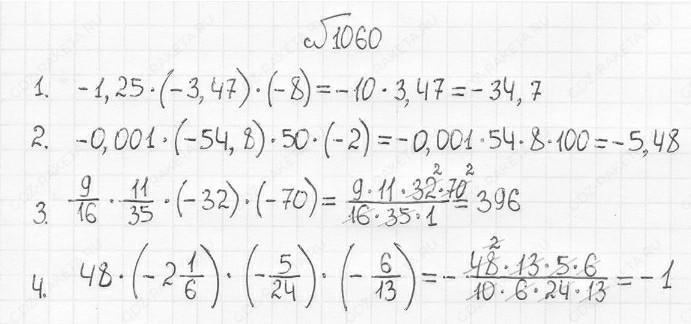 №1060
1. -1,25·(-3,47)·(-8)=-10·3,47=-34,7
2. -0,001·(-54,8)·50·(-2)=-0,001·54·8·100=-5,48
3. 9/16·11/35·(-32)·(-70)=9·11·32²·70²/16·35·1=396
4. 48·(-2 1/6)·(-5/24)·(-6/13)=-48²·13·5·6/10·6·24·13=-1